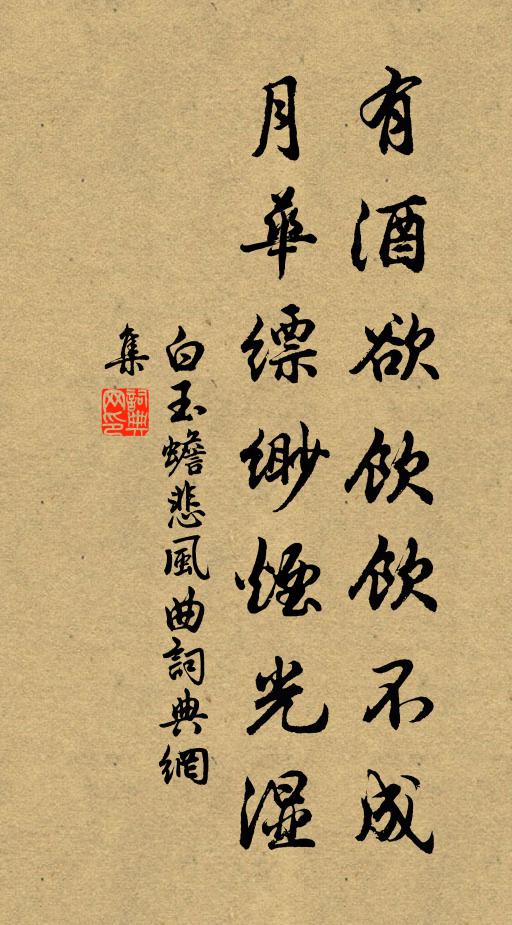 有酒欲飲飲不成
月華縹緲煙光湿
白玉蟾悲風曲詞典網
集
詞典網印